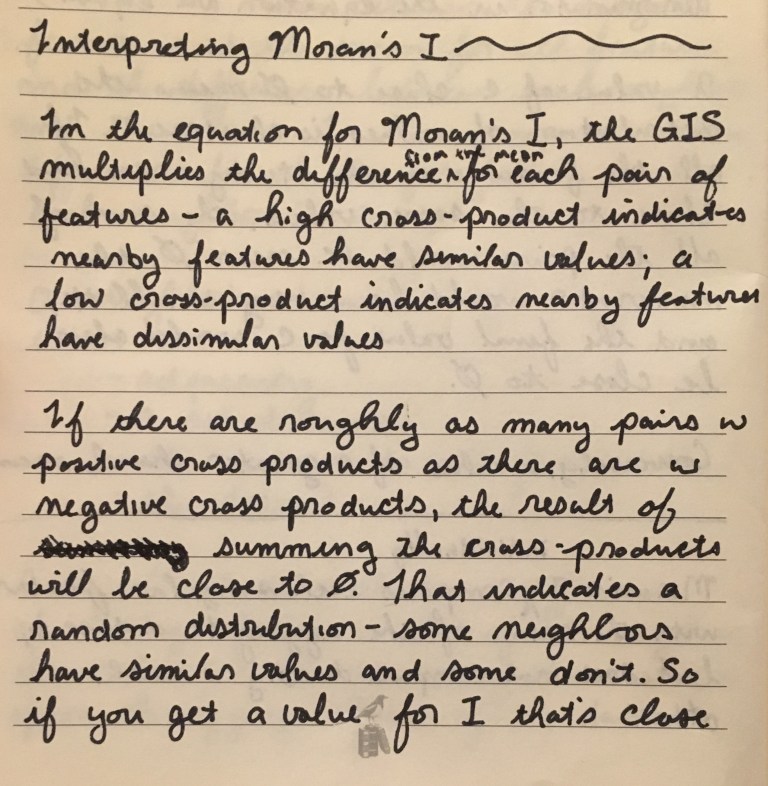 Interpreting Moran's I
In the equation for Moran's I, the GIS
multiplies the difference ^from the mean for each pair of
features - a high cross-product indicates
nearby features have similar values; a
low cross-product indicates nearby features
have dissimilar values
If there are roughly as many pairs w
positive cross products as there are w
negative cross products, the result of
summing the cross-products
will be close to Ø. That indicates a
random distribution - some neighbors
have similar values and some don't. So
if you get a value for I that's close